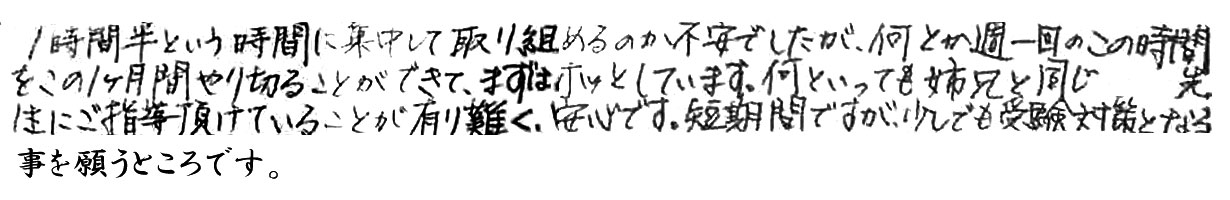 1時間半という時間に集中して取り組めるのか不安でしたが、何とか週一回のこの時間
をこの1ヶ月間やり切ることができて、まずはホッとしています。何といっても姉兄と同じ 先
生にご指導頂けていることが有り難く、安心です。短期間ですが、少しでも受験対策となる
事を願うところです。